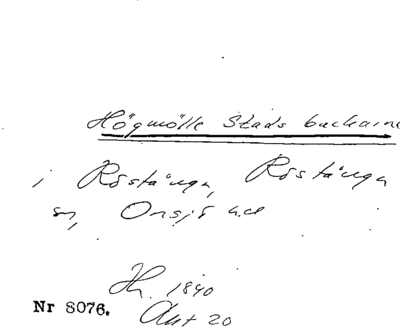 Högmölle Stads backarne
i Röstånga, Röstånga
sn, Onsjö hd
Hr. 1840
Nr 8076. Akt 20